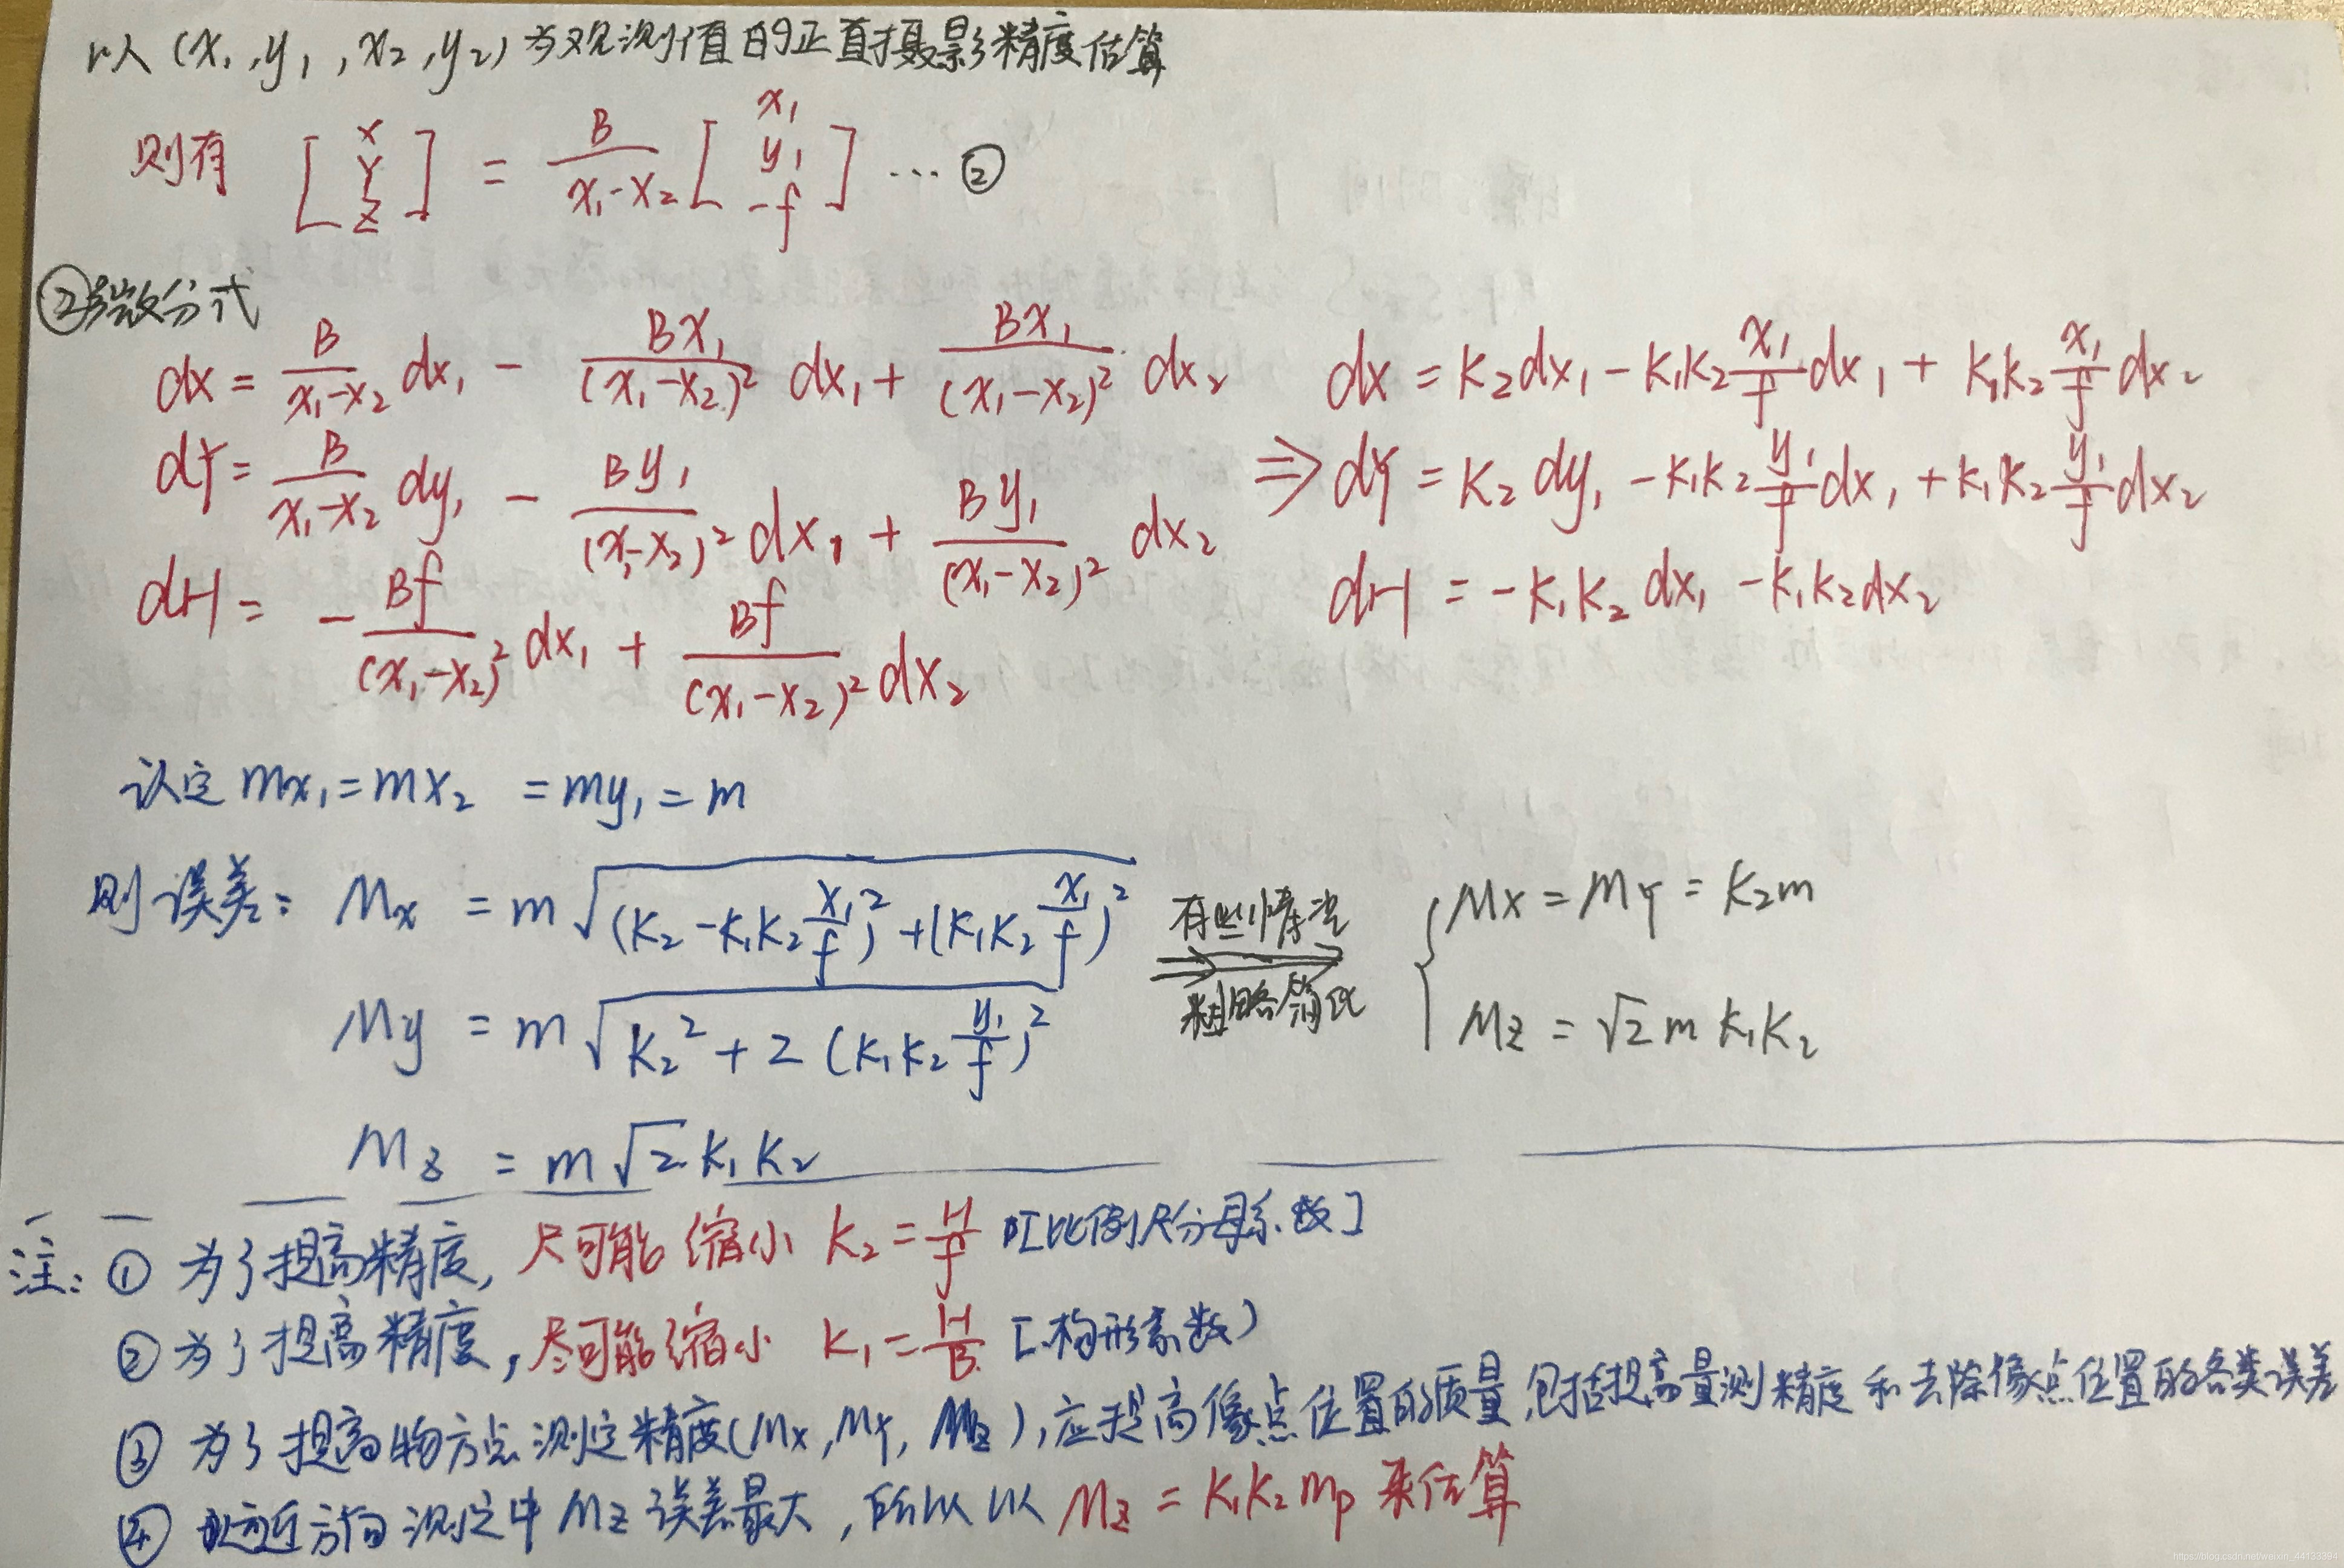 以(x₁,y₁,x₂,y₂)为观测值的正直摄影精度估算
则有 [X Y Z] = B/(x₁-x₂) [x₁ y₁ -f] … ②
②微分式
dx = B/(x₁-x₂) dx₁ - Bx₁/(x₁-x₂)² dx₁ + Bx₁/(x₁-x₂)² dx₂
dY = B/(x₁-x₂) dy₁ - By₁/(x₁-x₂)² dx₁ + By₁/(x₁-x₂)² dx₂
dH = - Bf/(x₁-x₂)² dx₁ + Bf/(x₁-x₂)² dx₂
dx = K₂dx₁ - K₁K₂ x₁/f dx₁ + K₁K₂ x₁/f dx₂
⇒ dY = K₂dy₁ - K₁K₂ y₁/f dx₁ + K₁K₂ y₁/f dx₂
dH = -K₁K₂dx₁ - K₁K₂dx₂
认定 mx₁ = mx₂ = my₁ = m
则误差: Mx = m√((K₂-K₁K₂ x₁/f)²+(K₁K₂ x₁/f)²)
My = m√(K₂²+2(K₁K₂ y₁/f)²)
Mz = m√2 K₁K₂
有些情况
粗略简化
{ Mx = MY = K₂m
Mz = √2 m K₁K₂
注: ① 为了提高精度, 尽可能缩小 K₂ = H/f [比例尺分母系数]
② 为了提高精度, 尽可能缩小 K₁ = H/B [构形系数)
③ 为了提高物方点测定精度(Mx, MY, Mz), 应提高像点位置的质量, 包括提高量测精度和去除像点位置的各类误差
④ 近方向测定中 Mz 误差最大, 所以以 Mz = K₁K₂mp 来估算
https://blog.csdn.net/weixin_44133394